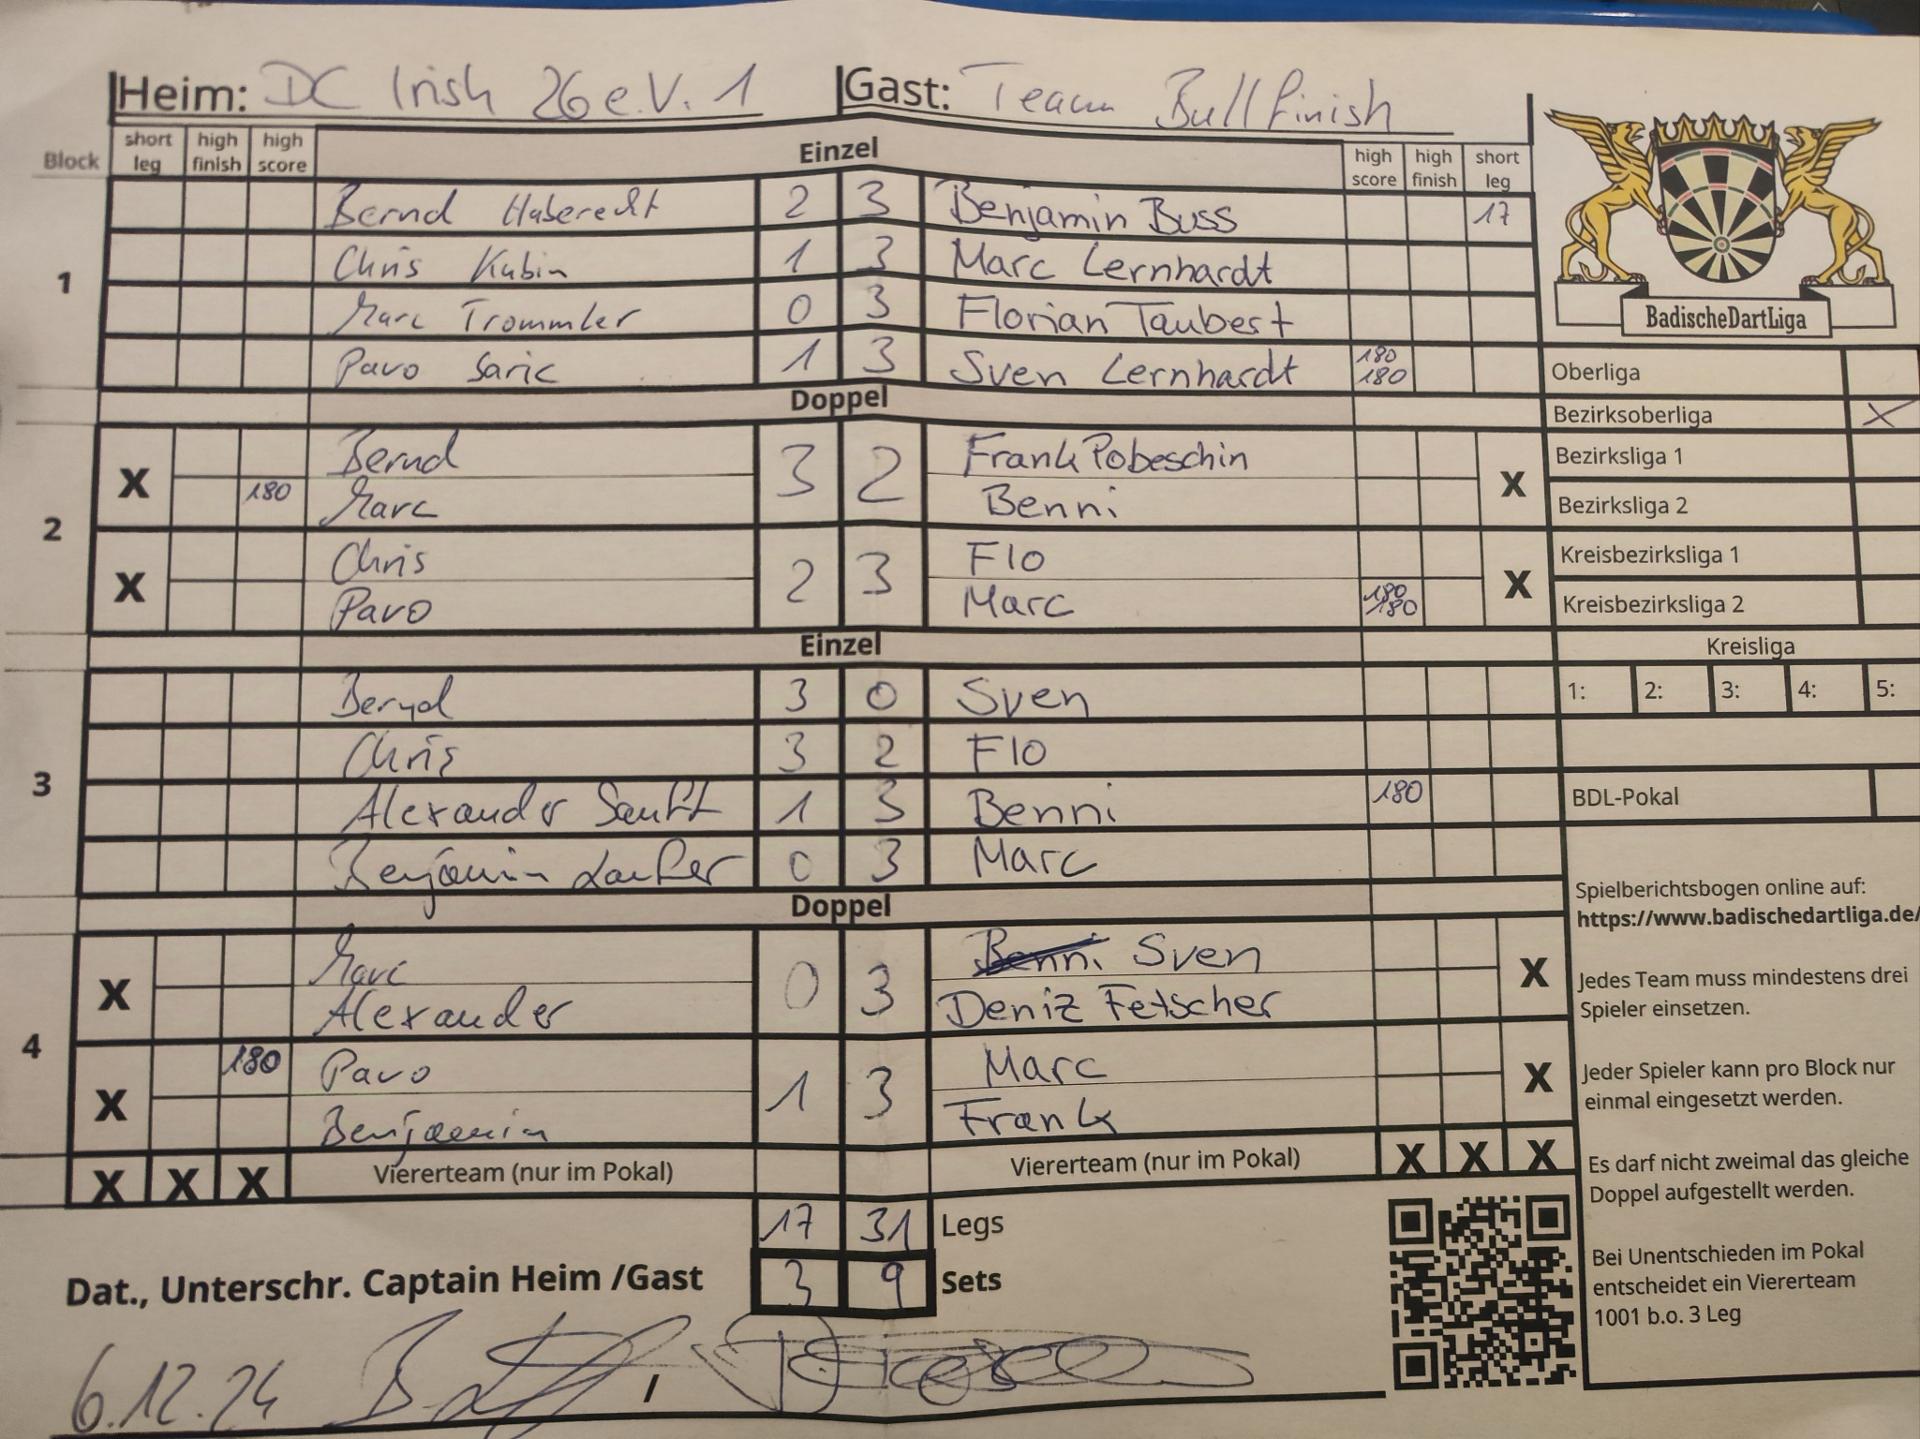 Heim: DC Irish 26 e.V. 1 Gast: Team Bullfinish
Block short leg high finish high score Einzel high score high finish short leg
1
Bernd Haberecht 2 3 Benjamin Buss 17
Chris Kubin 1 3 Marc Lernhardt
Marc Trommler 0 3 Florian Taubert
Pavo Saric 1 3 Sven Lernhardt 180 180
Doppel
2
X Bernd 3 2 Frank Pobeschin X
180 Marc Benni
X Chris 2 3 Flo X
Pavo Marc 180 180
Einzel
3
Bernd 3 0 Sven
Chris 3 2 Flo
Alexander 1 3 Benni 180
Benjamin 0 3 Marc
Doppel
4
X Marc 0 3 Benni Sven X
Alexander Deniz Fetscher
X 180 Pavo 1 3 Marc X
Benjamin Frank
X X X Viererteam (nur im Pokal) Viererteam (nur im Pokal) X X X
17 31 Legs
3 9 Sets
Dat., Unterschr. Captain Heim /Gast
6.12.24 /
BadischeDartLiga
Oberliga
Bezirksoberliga X
Bezirksliga 1
Bezirksliga 2
Kreisbezirksliga 1
Kreisbezirksliga 2
Kreisliga
1: 2: 3: 4: 5:
BDL-Pokal
Spielberichtsbogen online auf:
https://www.badischedartliga.de/
Jedes Team muss mindestens drei
Spieler einsetzen.
Jeder Spieler kann pro Block nur
einmal eingesetzt werden.
Es darf nicht zweimal das gleiche
Doppel aufgestellt werden.
Bei Unentschieden im Pokal
entscheidet ein Viererteam
1001 b.o. 3 Leg